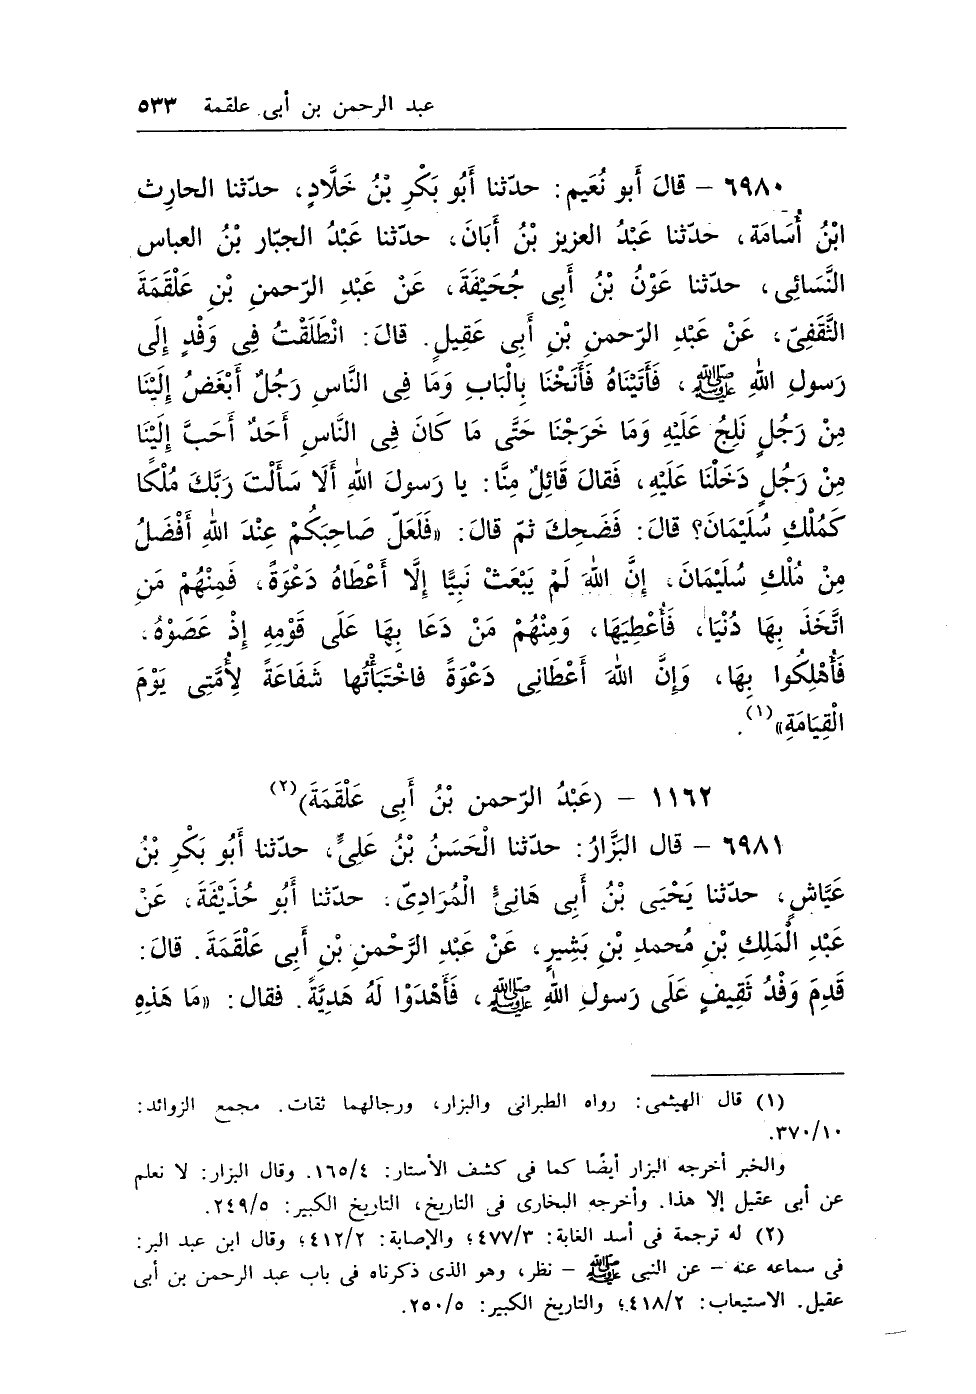 عبد الرحمن بن أبى علقمة ٥٣٣
٦٩٨٠ – قالَ أَبو نُعَيم: حدّثنا أَبُو بَكْرِ بْنُ خَلَّادٍ، حدّثنا الحارِث
ابْنُ أُسَامَة، حدّثنا عَبْدُ العزيز بْنُ أَبَانَ، حدّثنا عَبْدُ الجبّار بْنُ العباس
النَّسَائِى، حدّثنا عَوْنُ بْنُ أَبى جُحَيْفَةَ، عَنْ عَبْدِ الرّحمنِ بْنِ عَلْقَمَةَ
الثَّقَفِىّ، عَنْ عَبْدِ الرّحمنِ بْنِ أَبى عَقِيلٍ. قالَ: انْطَلَقْتُ فِى وَفْدٍ إِلَى
رَسولِ اللهِ ﷺ، فَأَتَيْنَاهُ فَأَنَخْنَا بِالْبَابِ وَمَا فِى النَّاسِ رَجُلٌ أَبْغَضُ إِلَيْنَا
مِنْ رَجُلٍ نَلِجُ عَلَيْهِ وَمَا خَرَجْنَا حَتَّى مَا كَانَ فِى النَّاسِ أَحَدٌ أَحَبَّ إِلَيْنَا
مِنْ رَجُلٍ دَخَلْنَا عَلَيْهِ، فَقالَ قَائِلٌ مِنَّا: يا رَسولَ اللهِ أَلَا سَأَلْتَ رَبَّكَ مُلْكًا
كَمُلْكِ سُلَيْمَانَ؟ قالَ: فَضَحِكَ ثمّ قالَ: «فَلَعَلّ صَاحِبَكُمْ عِنْدَ اللهِ أَفْضَلُ
مِنْ مُلْكِ سُلَيْمَانَ، إِنَّ اللهَ لَمْ يَبْعَثْ نَبِيًّا إِلَّا أَعْطَاهُ دَعْوَةً، فَمِنْهُمْ مَنِ
اتَّخَذَ بِهَا دُنْيَا، فَأُعْطِيَهَا، وَمِنْهُمْ مَنْ دَعَا بِهَا عَلَى قَوْمِهِ إِذْ عَصَوْهُ،
فَأُهْلِكُوا بِهَا، وَإِنَّ اللهَ أَعْطَانِى دَعْوَةً فاخْتَبَأْتُها شَفَاعَةً لِأُمَّتِى يَوْمَ
الْقِيَامَةِ»(١).
١١٦٢ – (عَبْدُ الرّحمن بْنُ أَبى عَلْقَمَةَ)(٢)
٦٩٨١ – قال البَزَّارُ: حدّثنا الْحَسَنُ بْنُ عَلِىٍّ، حدّثنا أَبُو بَكْرِ بْنُ
عَيَّاشٍ، حدّثنا يَحْيَى بْنُ أَبِى هَانِئٍ الْمُرَادِىّ، حدّثنا أَبُو حُذَيْفَةَ، عَنْ
عَبْدِ الْمَلِكِ بْنِ مُحمدِ بْنِ بَشِيرٍ، عَنْ عَبْدِ الرَّحْمنِ بْنِ أَبى عَلْقَمَةَ. قالَ:
قَدِمَ وَفْدُ ثَقِيفٍ عَلَى رَسولِ اللهِ ﷺ، فَأَهْدَوْا لَهُ هَدِيَّةً. فقال: «مَا هَذِهِ
(١) قال الهيثمى: رواه الطبرانى والبزار، ورجالهما ثقات. مجمع الزوائد:
٣٧٠/١٠.
والخبر أخرجه البزار أيضًا كما فى كشف الأستار: ١٦٥/٤. وقال البزار: لا نعلم
عن أبى عقيل إلا هذا. وأخرجه البخارى فى التاريخ، التاريخ الكبير: ٢٤٩/٥.
(٢) له ترجمة فى أسد الغابة: ٤٧٧/٣؛ والإصابة: ٤١٢/٢؛ وقال ابن عبد البر:
فى سماعه عنه – عن النبى ﷺ – نظر، وهو الذى ذكرناه فى باب عبد الرحمن بن أبى
عقيل. الاستيعاب: ٤١٨/٢؛ والتاريخ الكبير: ٢٥٠/٥.